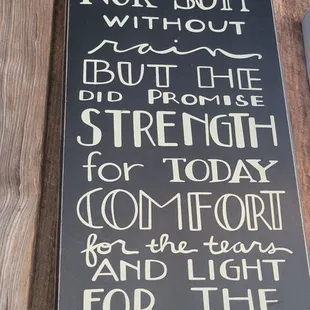 NOR SUN
WITHOUT
rain
BUT HE
DID PROMISE
STRENGTH
for TODAY
COMFORT
for the tears
AND LIGHT
FOR THE